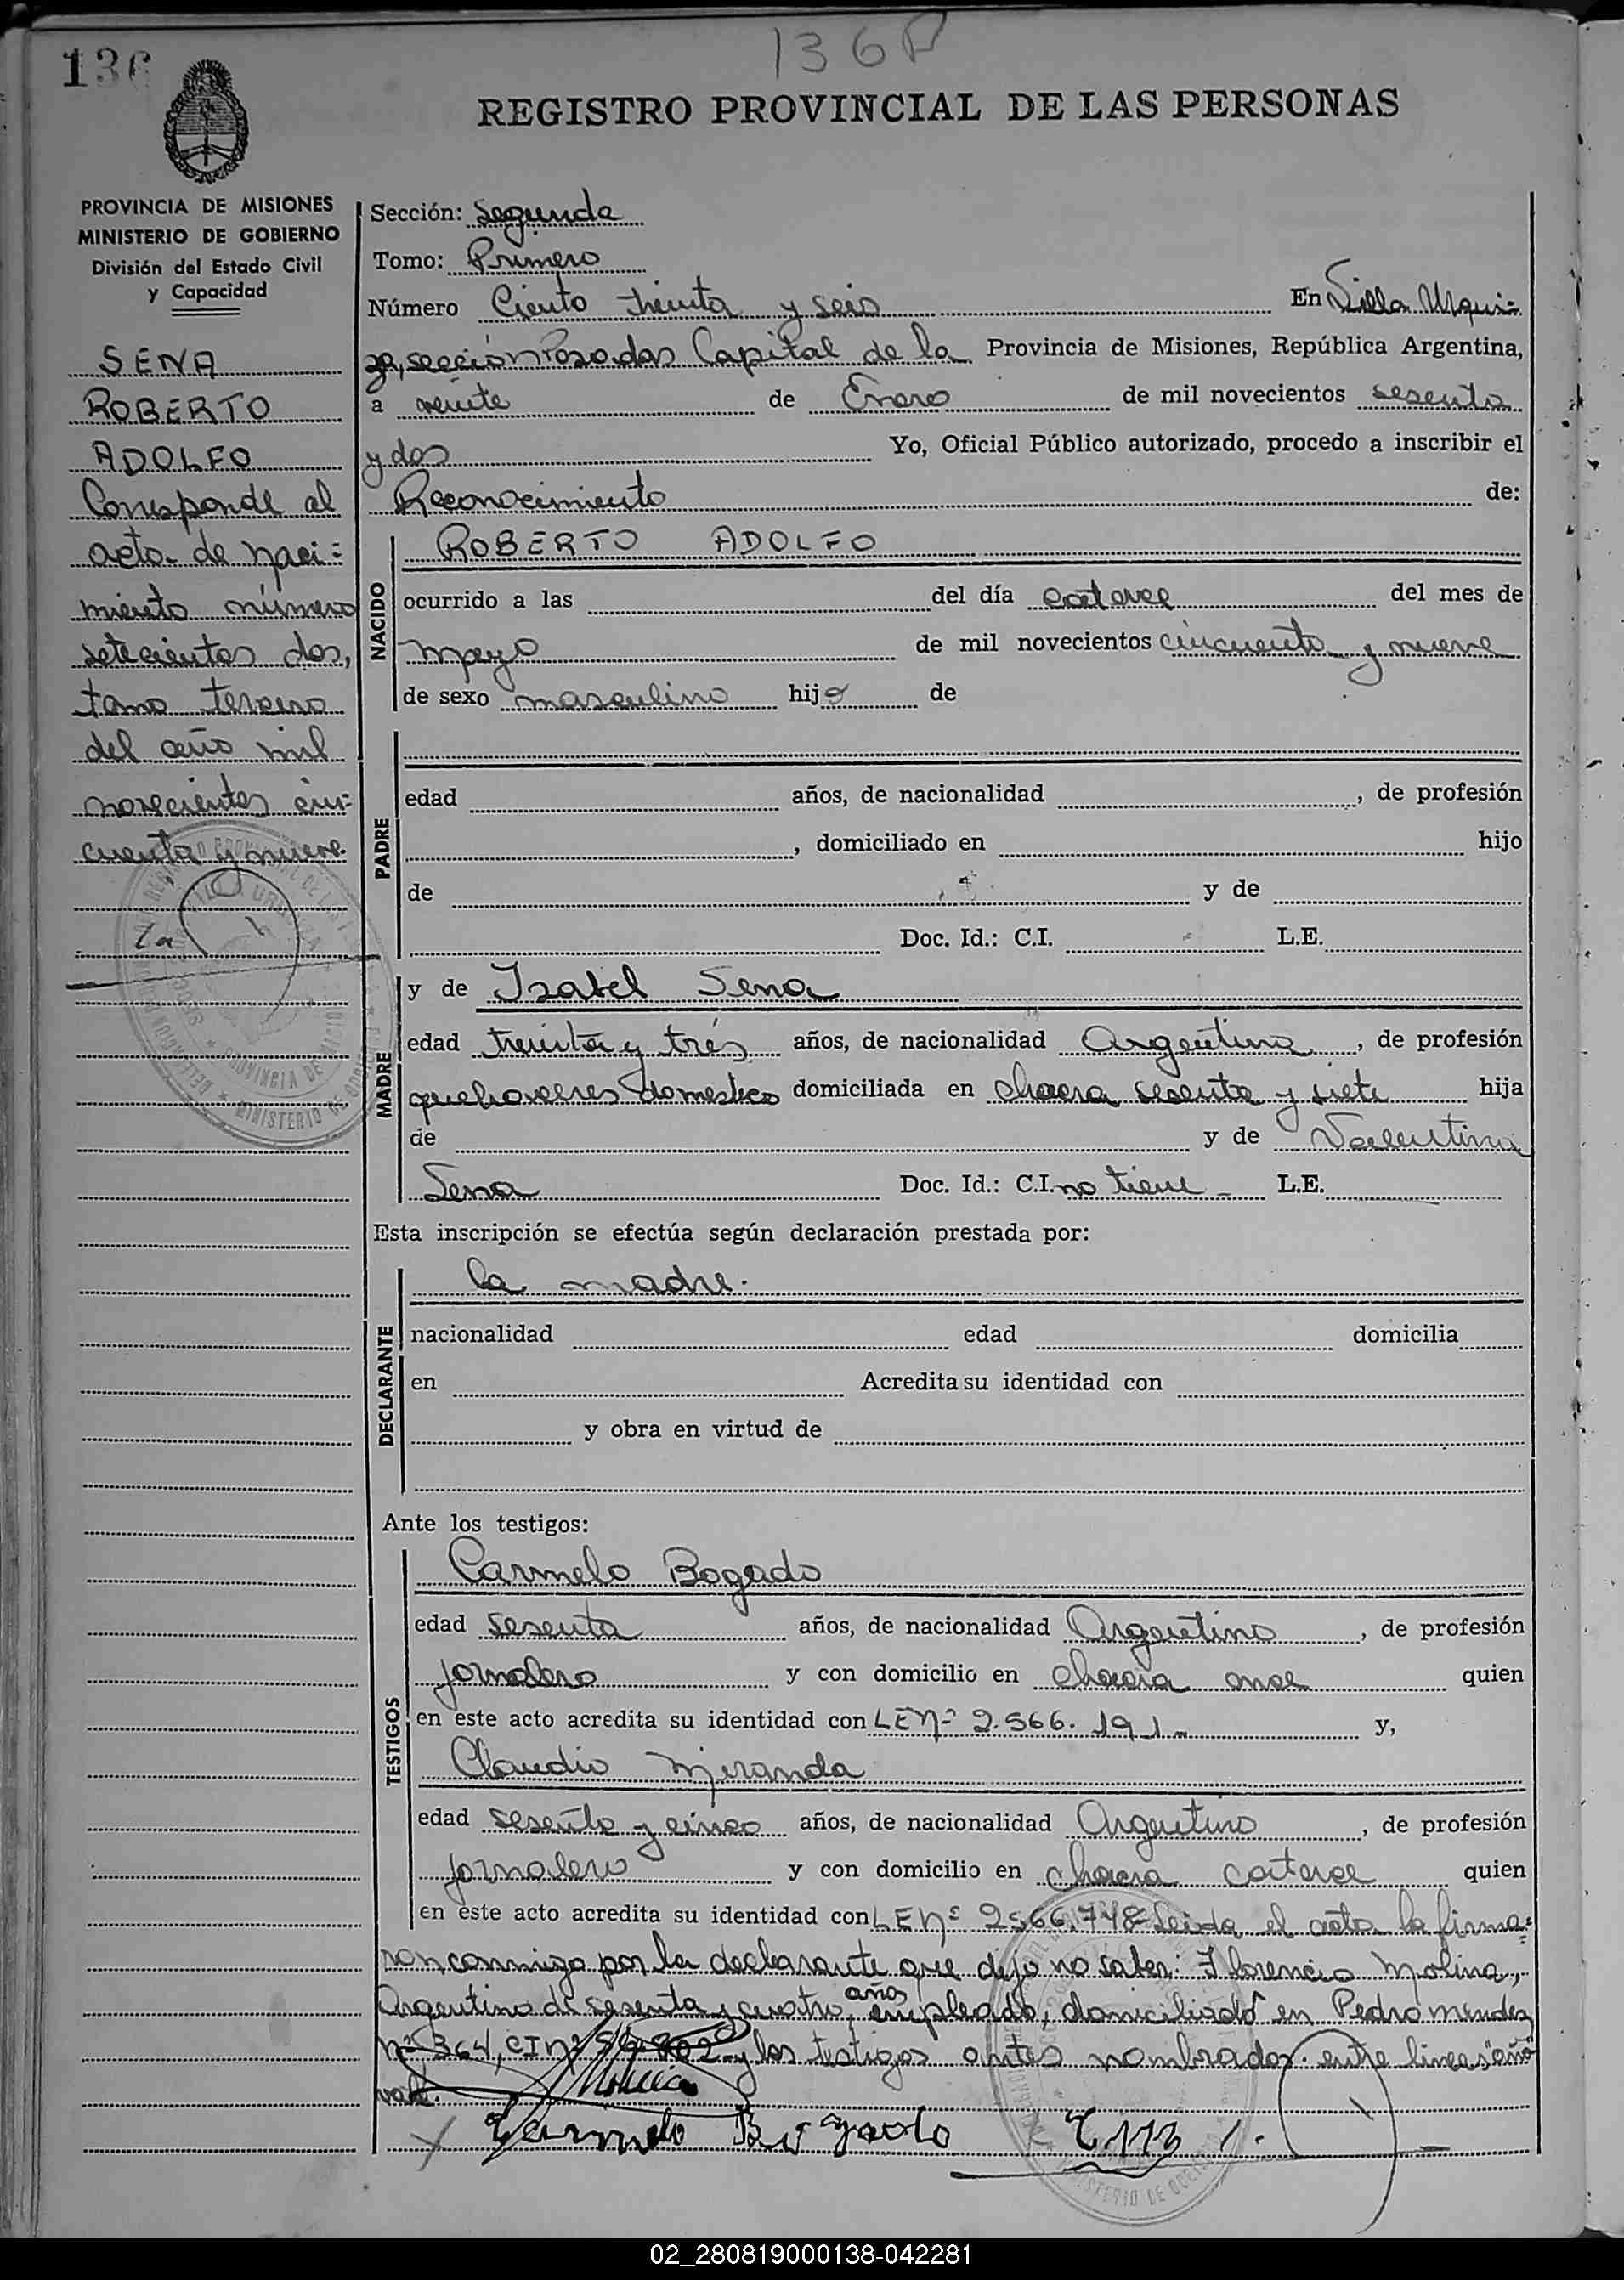 136
136 P
REGISTRO PROVINCIAL DE LAS PERSONAS
PROVINCIA DE MISIONES
MINISTERIO DE GOBIERNO
División del Estado Civil
y Capacidad
SENA
ROBERTO
ADOLFO
Corresponde al
acta de naci=
miento número
setecientos dos,
tomo tercero
del año mil
novecientos cin=
cuenta y nueve.
Sección: Segunda
Tomo: Primero
Número Ciento treinta y seis En Villa Urqui=
za, sección Posadas Capital de la Provincia de Misiones, República Argentina,
a veinte de Enero de mil novecientos sesenta
y dos Yo, Oficial Público autorizado, procedo a inscribir el
Reconocimiento de:
NACIDO
ROBERTO ADOLFO
ocurrido a las del día catorce del mes de
mayo de mil novecientos cincuenta y nueve
de sexo masculino hijo de
PADRE
edad años, de nacionalidad , de profesión
, domiciliado en hijo
de y de
Doc. Id.: C.I. L.E.
MADRE
y de Isabel Sena
edad treinta y tres años, de nacionalidad Argentina, de profesión
quehaceres domestico domiciliada en chacra sesenta y siete hija
de y de Valentina
Sena Doc. Id.: C.I. no tiene - L.E.
Esta inscripción se efectúa según declaración prestada por:
DECLARANTE
la madre.
nacionalidad edad domicilia
en Acredita su identidad con
y obra en virtud de
Ante los testigos:
TESTIGOS
Carmelo Bogado
edad sesenta años, de nacionalidad Argentino, de profesión
jornalero y con domicilio en chacra once quien
en este acto acredita su identidad con LE Nº 2.566.191- y,
Claudio Miranda
edad sesenta y cinco años, de nacionalidad Argentino, de profesión
jornalero y con domicilio en chacra catorce quien
en este acto acredita su identidad con LE Nº 2566.748- Leida el acta la firma=
ron conmigo por la declarante que dijo no saber: Florencio Molina,
Argentino de sesenta y cuatro años, empleado, domiciliado en Pedro Mendez
Nº 364, CI Nº y los testigos antes nombrados. entre lineas "año"
vale.
Carmelo Bogado
02_280819000138-042281